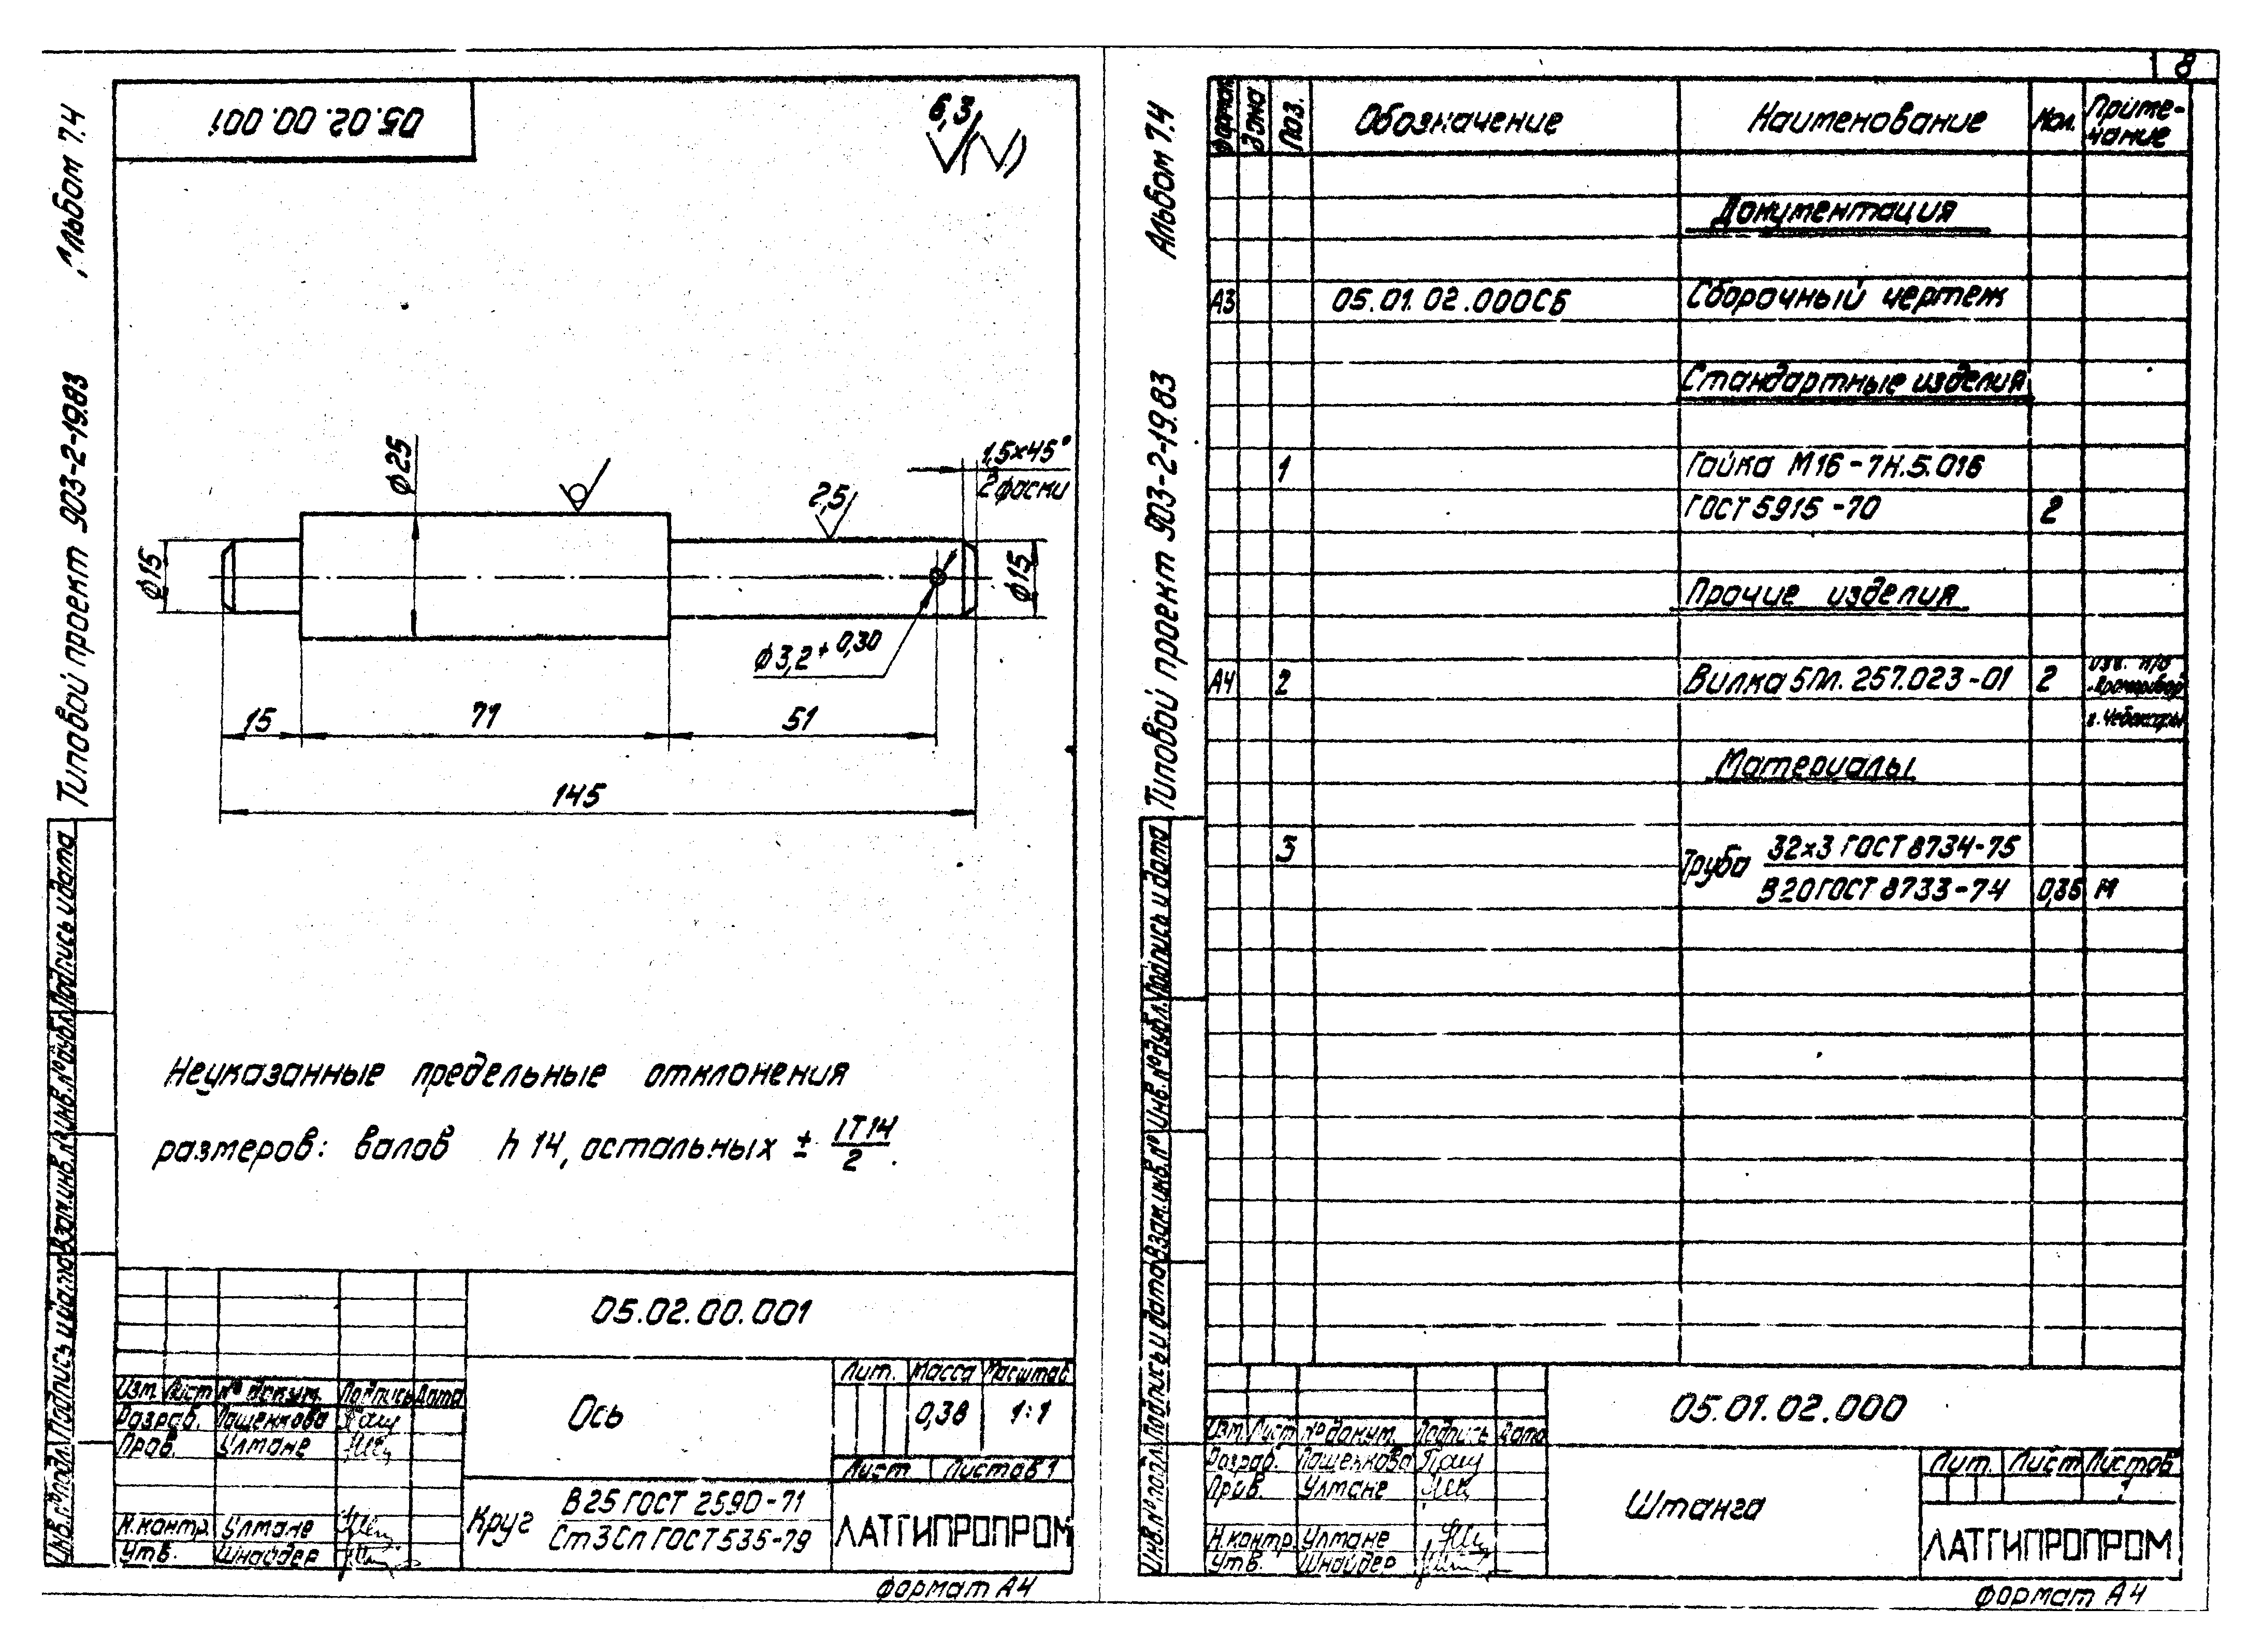 05.02.00.001
6,3
Альбом 7.4
Типовой проект 903-2-19.83
1,5×45°
2 фаски
ϕ25
2,5
ϕ15
ϕ15
ϕ3,2+0,30
15
71
51
145
Неуказанные предельные отклонения
размеров: валов h14, остальных ± IT14/2.
Подпись и дата
Инв.№ дубл.
Взам.инв.№
Подпись и дата
Инв.№ подл.
05.02.00.001
Изм. Лист № докум. Подпись Дата
Разраб. Пащенкова
Пров. Улмане
Н.контр. Улмане
Утв. Шнайдер
Ось
Лит. Масса Масштаб
0,38 1:1
Лист Листов 1
Круг В25 ГОСТ 2590-71
Ст3Сп ГОСТ 535-79
ЛАТГИПРОПРОМ
Формат А4
8
Альбом 7.4
Типовой проект 903-2-19.83
Формат Зона Поз. Обозначение Наименование Кол. Приме-
чание
Документация
А3 05.01.02.000СБ Сборочный чертеж
Стандартные изделия
1 Гайка М16-7Н.5.016
ГОСТ 5915-70 2
Прочие изделия
А4 2 Вилка 5Пл.257.023-01 2
г. Чебоксары
Материалы
3 Труба 32×3 ГОСТ 8734-75
В20 ГОСТ 8733-74 М
Подпись и дата
Инв.№ дубл.
Взам.инв.№
Подпись и дата
Инв.№ подл.
05.01.02.000
Изм. Лист № докум. Подпись Дата
Разраб. Пащенкова
Пров. Улмане
Н.контр. Улмане
Утв. Шнайдер
Штанга
Лит. Лист Листов
1
ЛАТГИПРОПРОМ
Формат А4